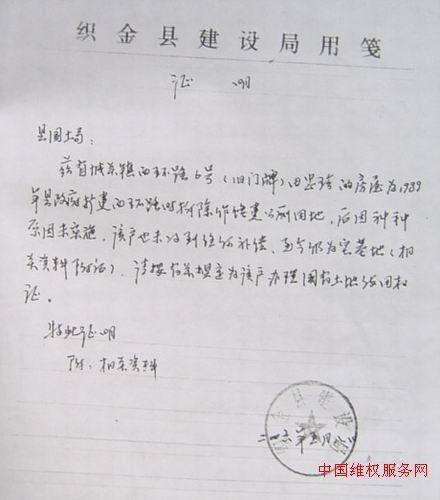 织金县建设局用笺
证 明
县国土局:
兹有城关镇西环路6号(旧门牌)田 的房屋为1989
年县政府扩建西环路时拆除作修建公厕用地,后因种种
原因未实施,该户也未得到任何补偿,至今仍为空基地(相
关资料附后),请按有关规定为该户办理国有土地使用权
证。
特此证明
附:相关资料
织金县建设局
二 年 月
中国维权服务网